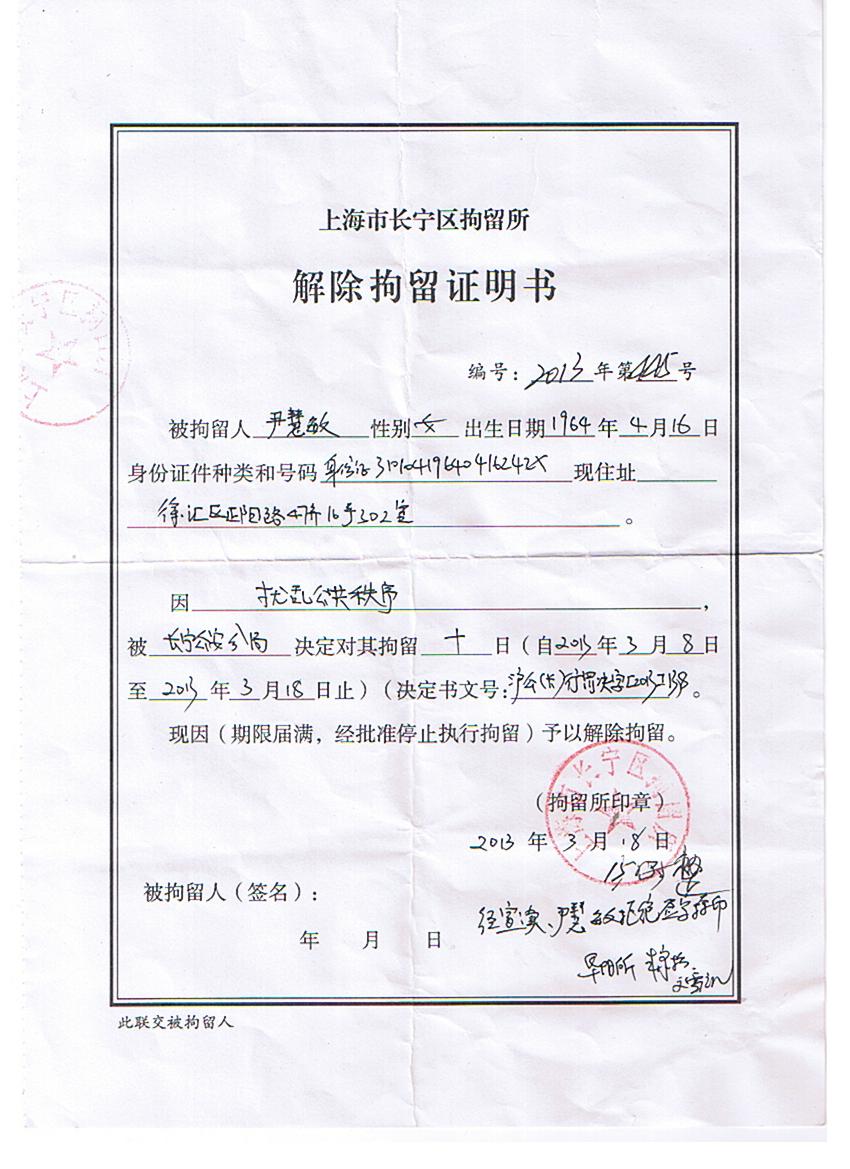 上海市长宁区拘留所
解除拘留证明书
编号：2013年第 号
被拘留人 尹慧敏 性别 女 出生日期 1964 年 4 月 16 日
身份证件种类和号码 身份证 31010419640416242X 现住址
徐汇区 路 16号302室 。
因 扰乱公共秩序 ，
被 长宁公安分局 决定对其拘留 十 日（自2013年 3 月 8 日
至 2013 年 3 月 18 日止）（决定书文号： 行罚决字[2013] 。
现因（期限届满，经批准停止执行拘留）予以解除拘留。
（拘留所印章）
2013 年 3 月 18 日
被拘留人（签名）：
经宣读、尹慧敏拒绝签字捺印
年 月 日
此联交被拘留人